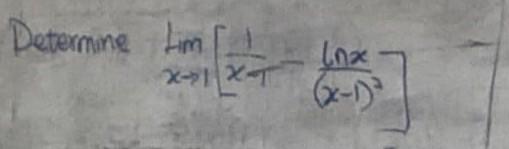 Determine lim x→1 [ 1/(x-1) - lnx/(x-1)² ]